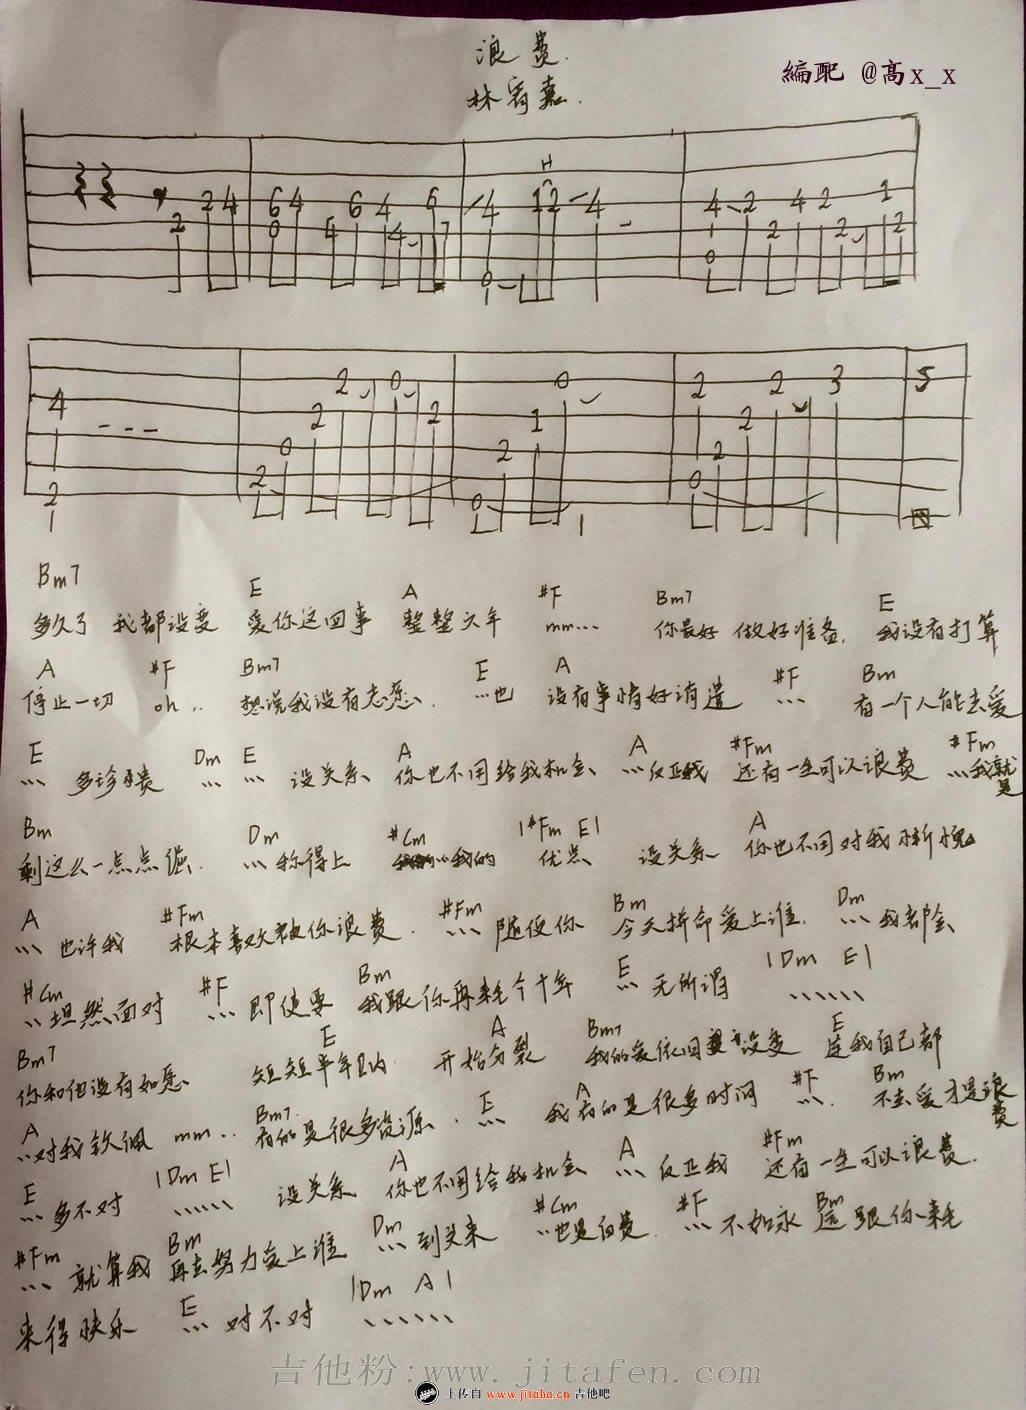 浪费.
林宥嘉.
编配 @高x_x
2 2 4 6 4 0 4 6 4 4 6 7 4 H 1 2 4 0 4 2 4 2 1 0 2 2 2
4 2 2 0 2 2 0 2 0 2 1 0 2 2 2 3 0 2 5
Bm7 E A #F Bm7 E
多久了 我都没变 爱你这回事 整整六年 mm... 你最好 做好准备. 我没有打算
A #F Bm7 E A #F Bm
停止一切 oh .. 想说我没有志愿、 ...也 没有事情好消遣 ... 有一个人能去爱
E Dm E A A #Fm #Fm
... 多珍贵 ... ... 没关系、你也不用给我机会 ...反正我 还有一生可以浪费 ...我就是
Bm Dm #Cm |#Fm E| A
剩这么一点点倔. ... 称得上 ..我的 优点、 没关系 你也不用对我惭愧
A #Fm #Fm Bm Dm
... 也许我 根本喜欢被你浪费. ... 随便你 今天拼命爱上谁. ... 我都会
#Cm #F Bm E |Dm E|
.. 坦然面对 ... 即使要 我跟你再耗个十年 ... 无所谓 ......
Bm7 E A Bm7 E
你和他没有如愿、 短短半年内 开始分裂 我的爱依旧没变 连我自己都
A Bm7. E A #F Bm
..对我钦佩 mm .. 有的是很多资源、. ... 我有的是很多时间 ... 不去爱才是浪费
E |Dm E| A A #Fm
... 多不对 ...... 没关系 你也不用给我机会 ... 反正我 还有一生可以浪费.
#Fm Bm Dm #Cm #F Bm
... 就算我 再去努力爱上谁 ... 到头来 ..也是白费. ... 不如永远跟你耗
E |Dm A|
来得快乐 ... 对不对 ......
吉他粉:www.jitafen.com
上传自 www.jitaba.cn 吉他吧